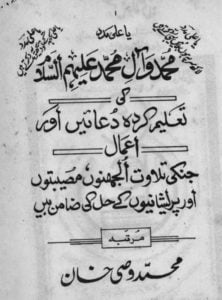 یا علی مدد
محمد وآلِ محمد علیہم السّلام
کی
تعلیم کردہ دعائیں اور
اعمال
جنکی تلاوت الجھنوں مصیبتوں
اور پریشانیوں کے حل کی ضامن ہیں
مرتبہ
محمد وصی خان